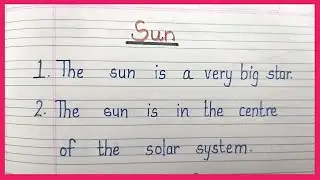 Sun
1. The sun is a very big star.
2. The sun is in the centre
of the solar system.